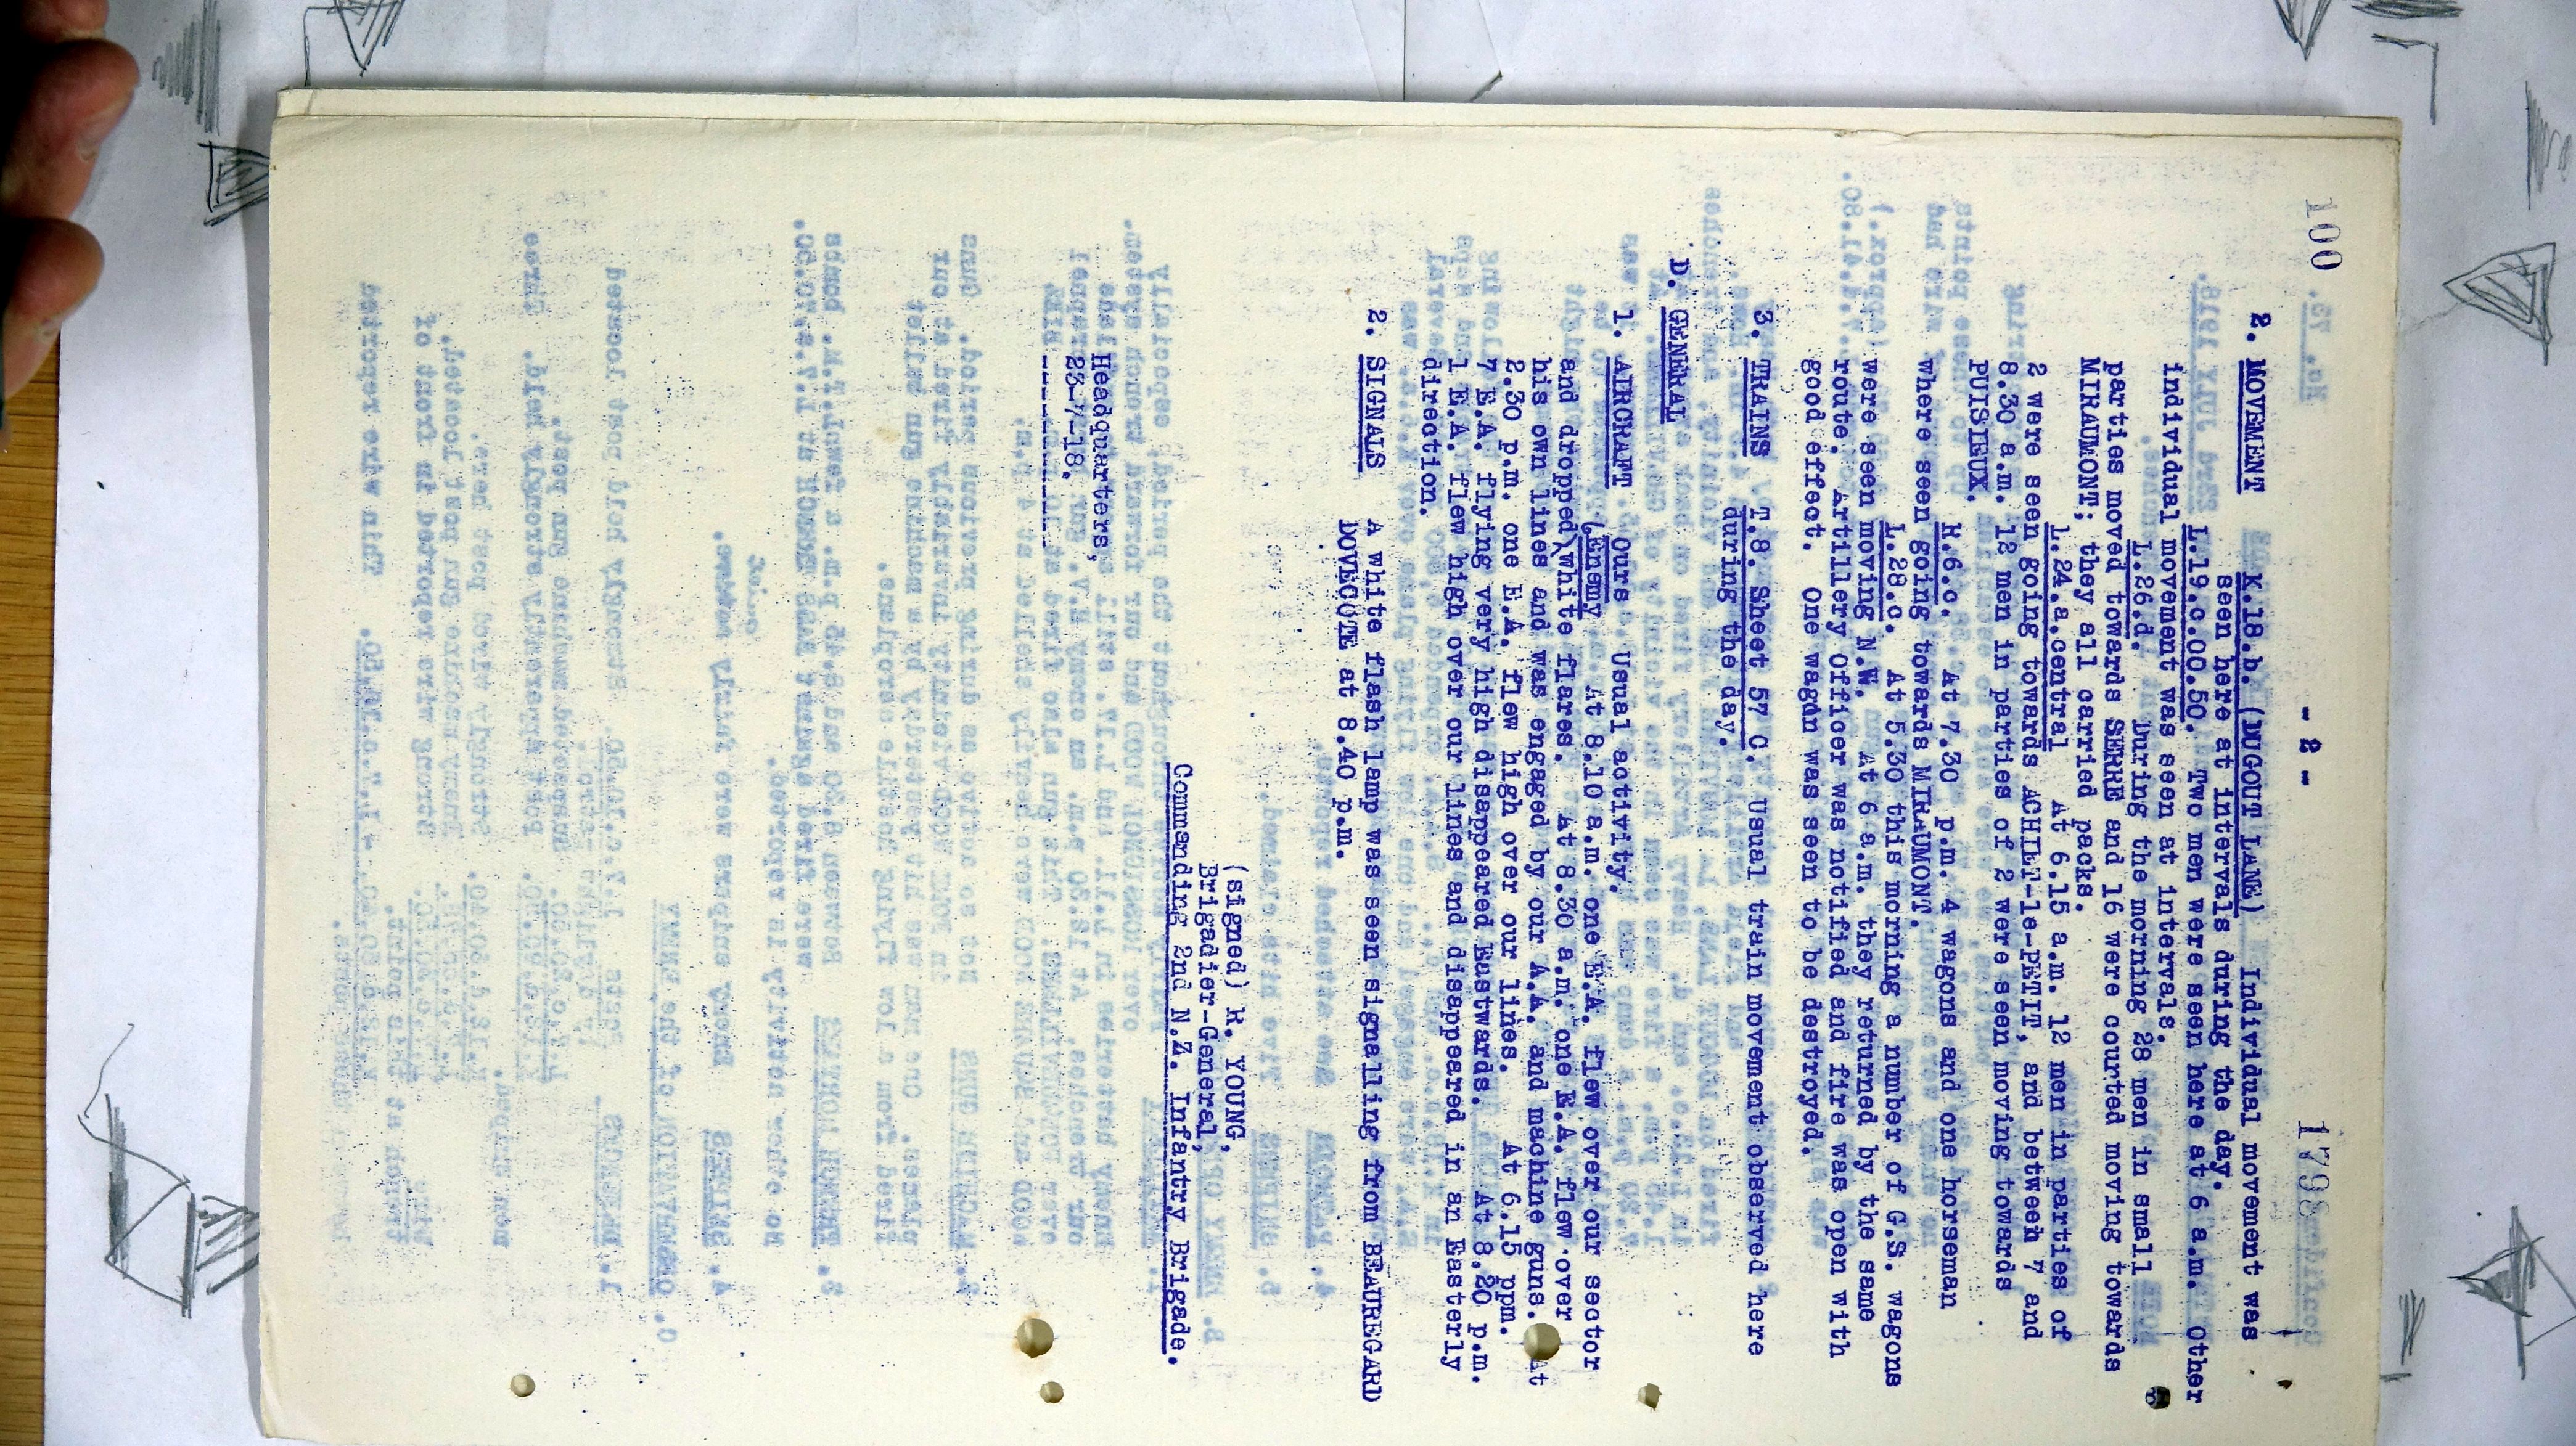 100
1798
- 2 -
2. MOVEMENT K.18.b. (DUGOUT LANE) Individual movement was
seen here at intervals during the day.
L.19.c.00.50. Two men were seen here at 6 a.m. Other
individual movement was seen at intervals.
L.26.d. During the morning 28 men in small
parties moved towards SERRE and 16 were courted moving towards
MIRAUMONT; they all carried packs.
L.24.a.central At 6.15 a.m. 12 men in parties of
2 were seen going towards ACHIET-le-PETIT, and between 7 and
8.30 a.m. 12 men in parties of 2 were seen moving towards
PUISIEUX.
R.6.c. At 7.30 p.m. 4 wagons and one horseman
where seen going towards MIRAUMONT.
L.28.c. At 5.30 this morning a number of G.S. wagons
were seen moving N.W. At 6 a.m. they returned by the same
route. Artillery officer was notified and fire was open with
good effect. One wagon was seen to be destroyed.
3. TRAINS T.8. Sheet 57 C. Usual train movement observed here
during the day.
D. GENERAL
1. AIRCRAFT Ours Usual activity.
(Enemy At 8.10 a.m. one E.A. flew over our sector
and dropped white flares. At 8.30 a.m. one E.A. flew over
his own lines and was engaged by our A.A. and machine guns. At
2.30 p.m. one E.A. flew high over our lines. At 6.15 ppm.
7 E.A. flying very high disappeared Eastwards. At 8.20 p.m.
1 E.A. flew high over our lines and disappeared in an Easterly
direction.
2. SIGNALS A white flash lamp was seen signalling from BEAUREGARD
DOVECOTE at 8.40 p.m.
(signed) R. YOUNG,
Brigadier-General,
Commanding 2nd N.Z. Infantry Brigade.
Headquarters,
23-7-18.